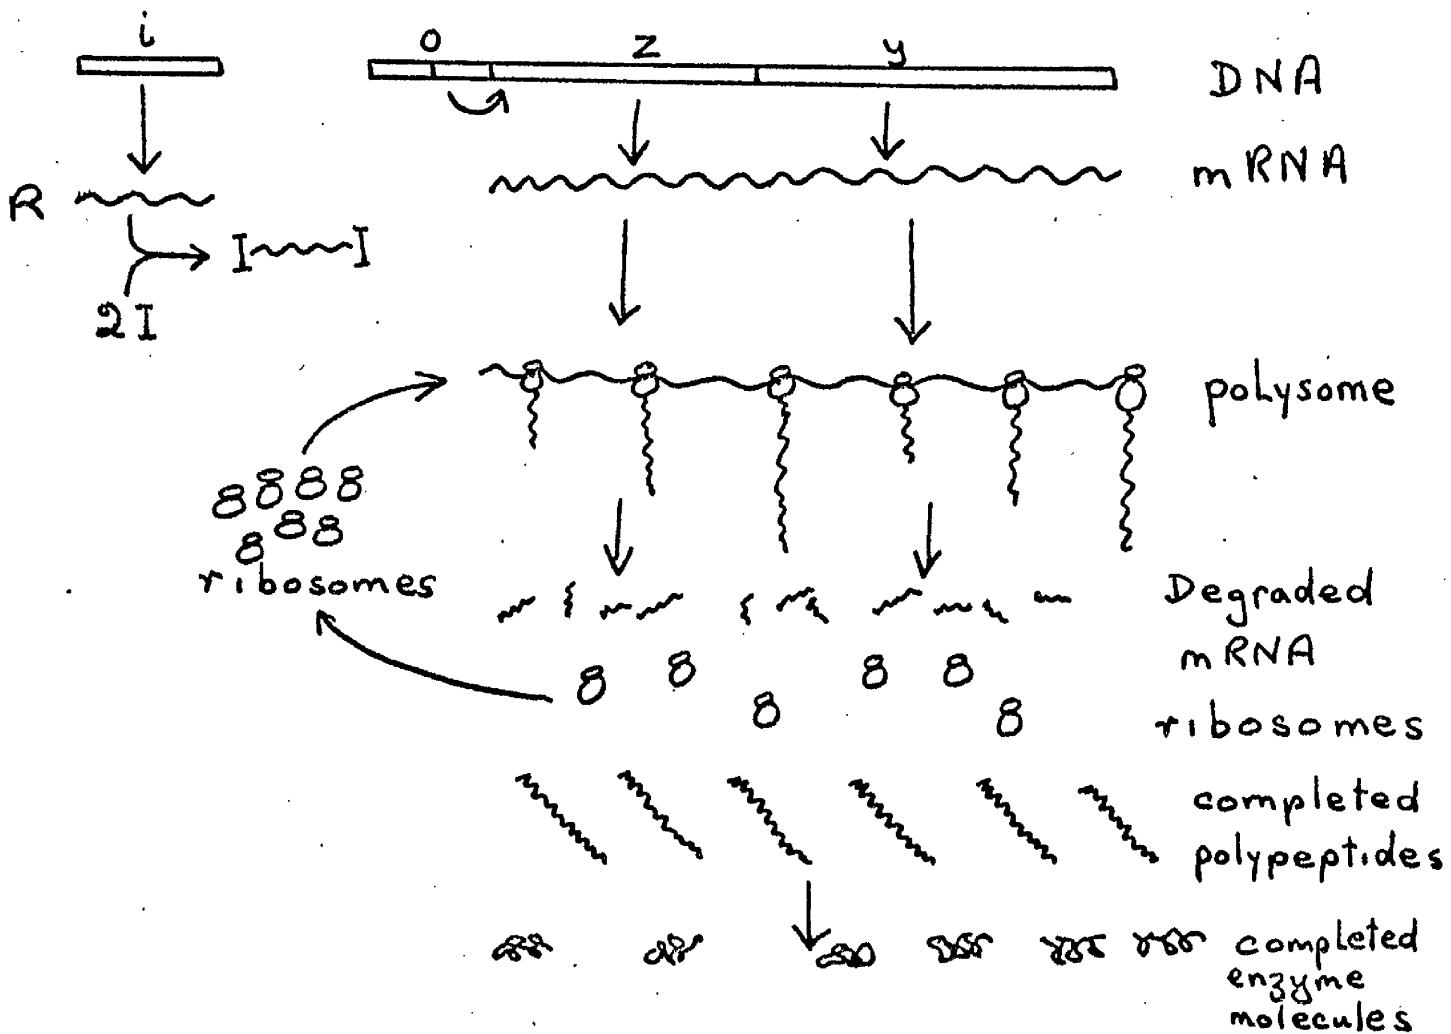 i
o z y
DNA
mRNA
R
I I
2I
polysome
ribosomes
Degraded
mRNA
ribosomes
completed
polypeptides
completed
enzyme
molecules